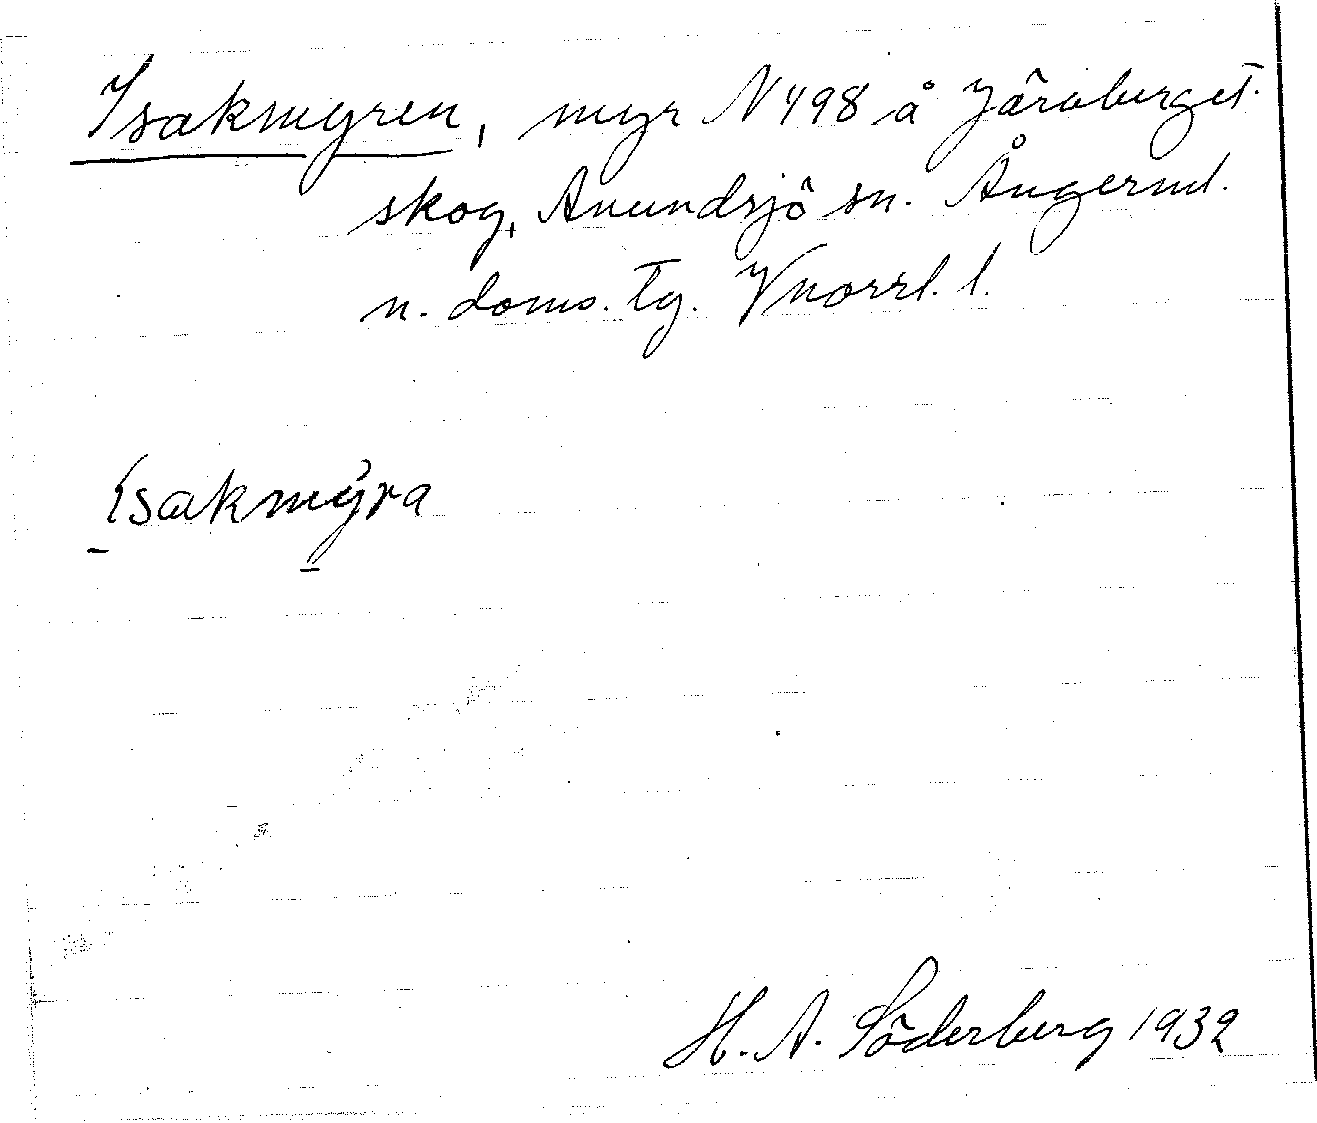 Isakmyren, myr N 498 å Järvberget
skog, Anundsjö sn. Ångerml.
n. doms. tg. Vnorrl. l.
Isakmyra
H. A. Söderberg 1932